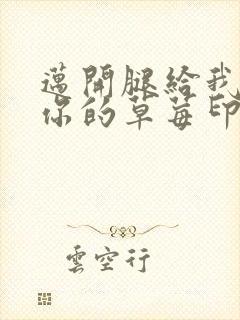 邁開腿給我
你的草莓印
雲空行